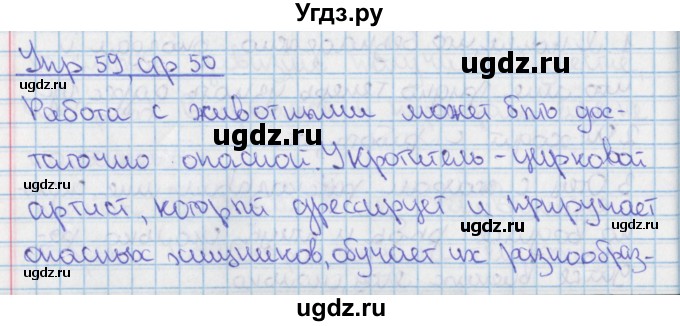 Угдз.ру
Упр 59 стр 50
Работа с животными может быть дос-
таточно опасной. Укротитель - цирковой
артист, который дрессирует и приручает
опасных хищников, обучает их разнообраз-
uгдз.ru
uгдз.ru
uгдз.ru
uгдз.ru
uгдз.ru
uгдз.ru
uгдз.ru